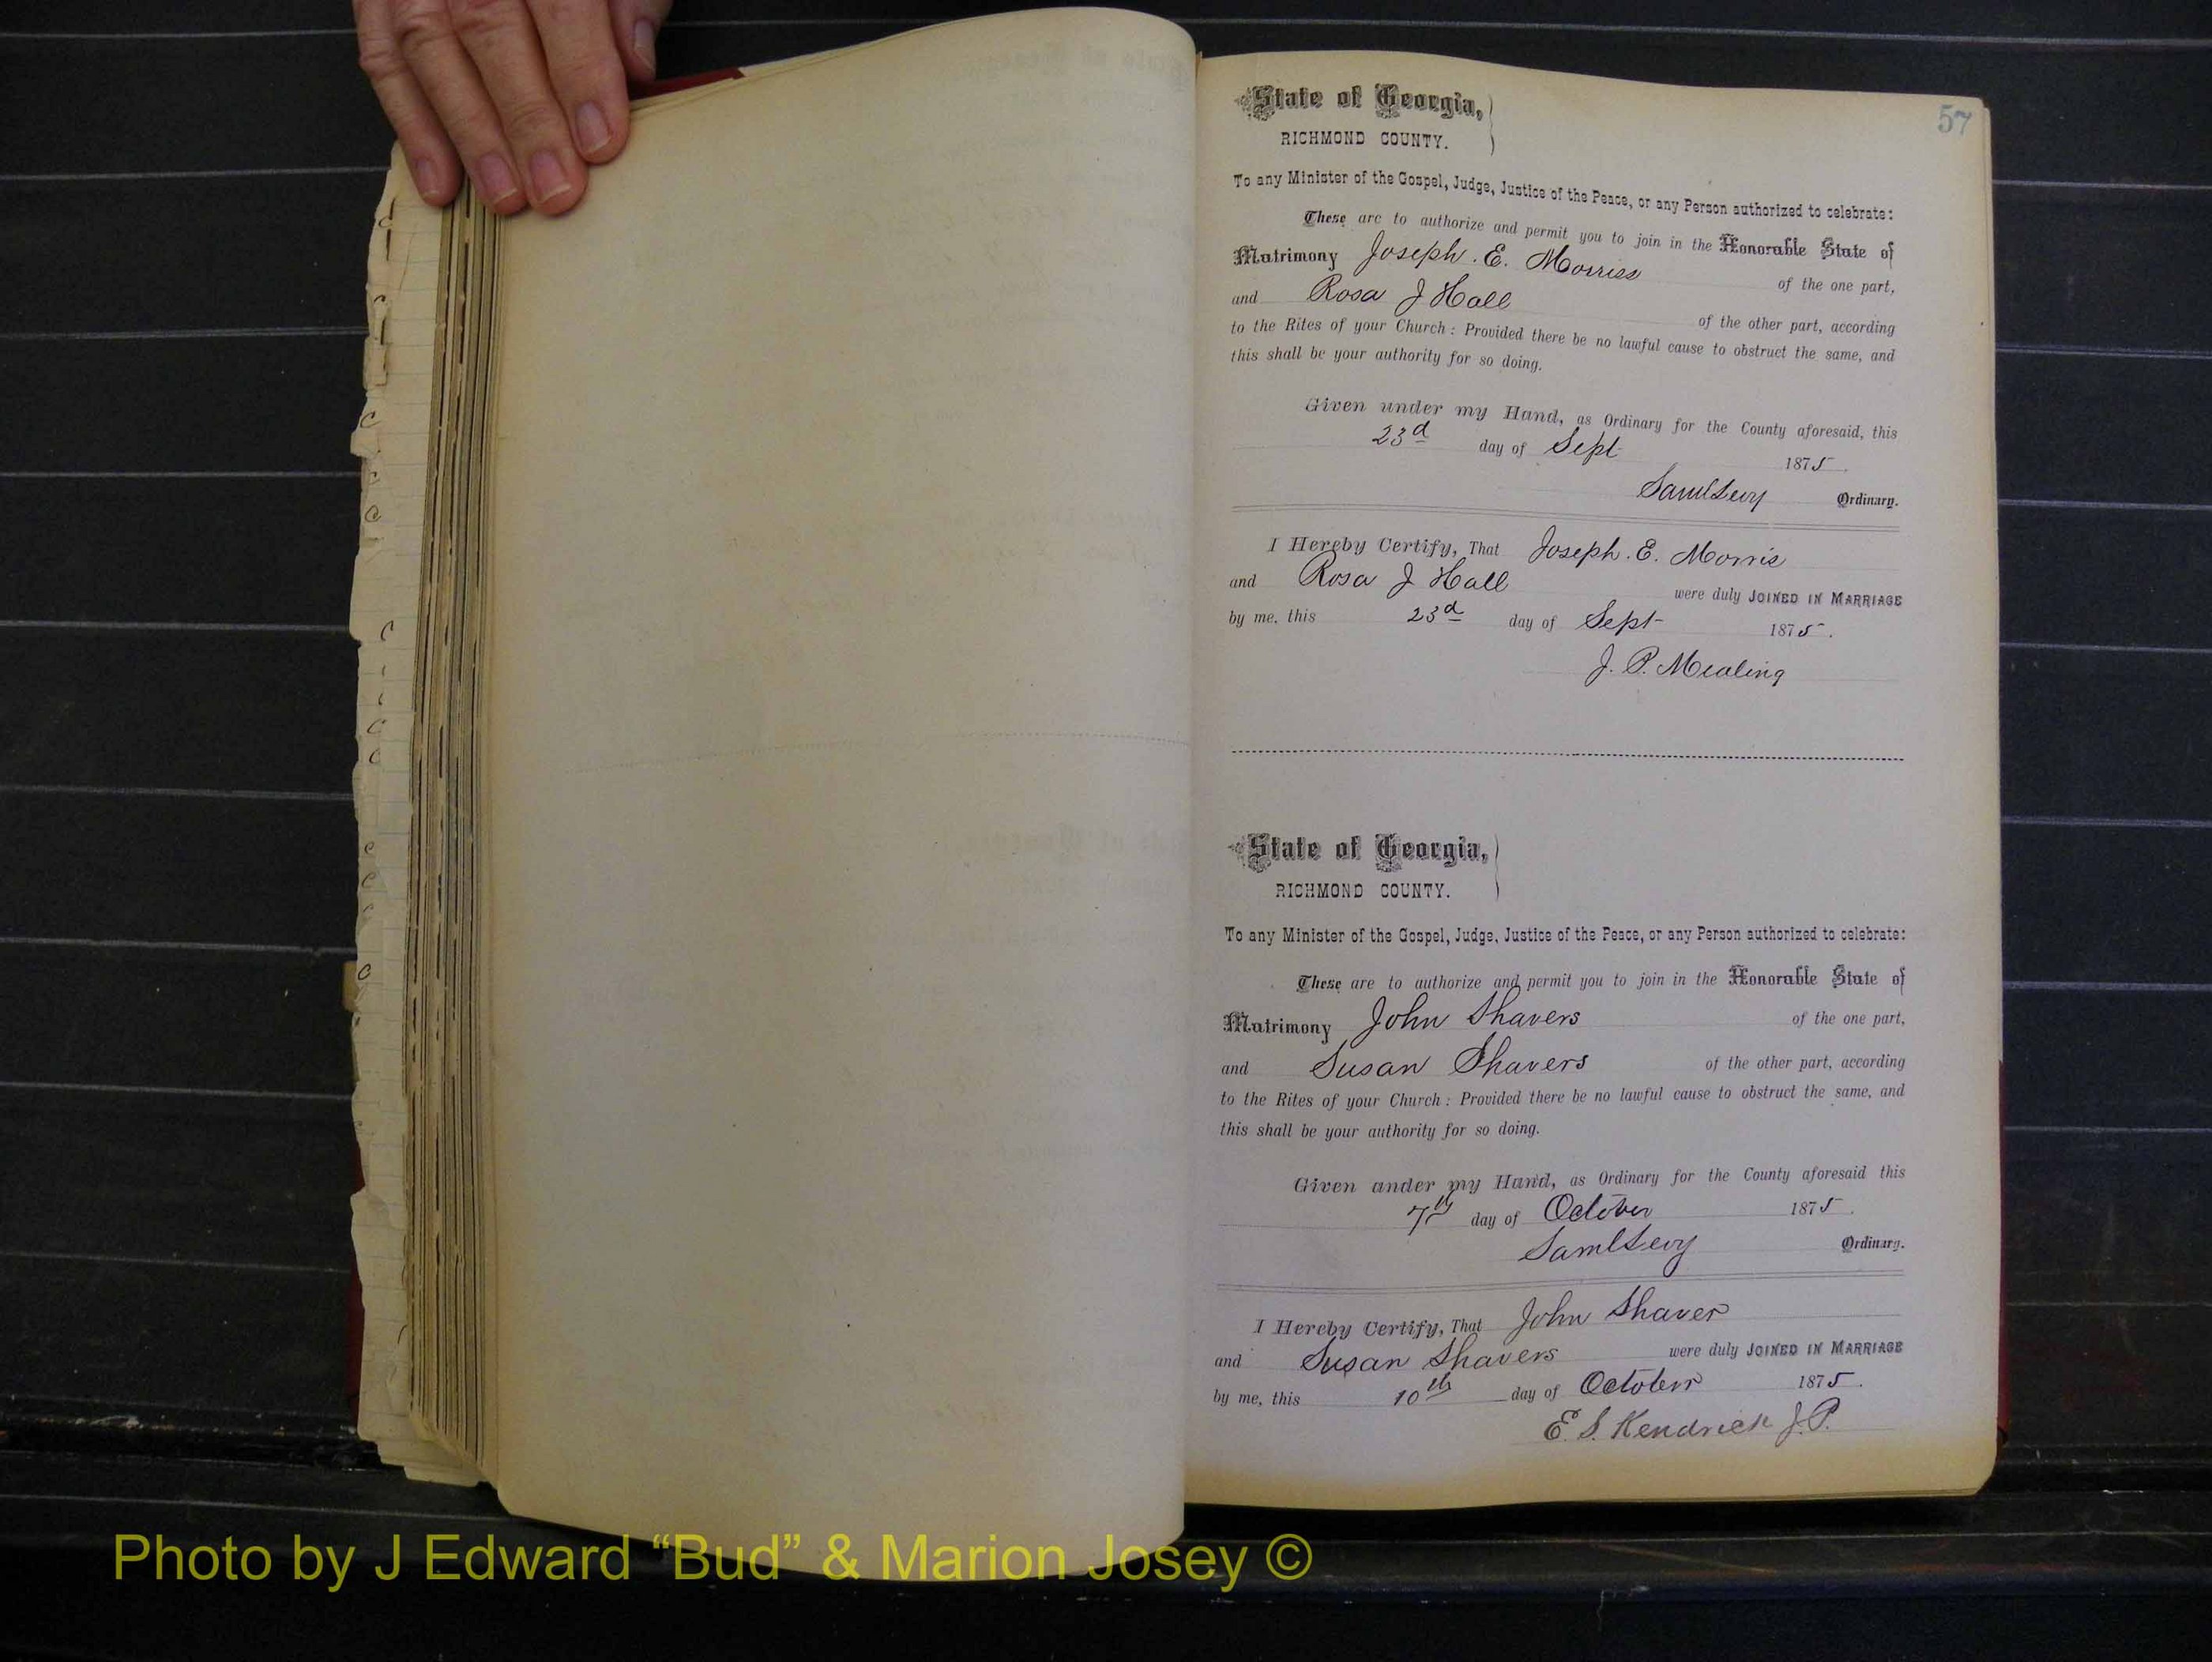 57
State of Georgia,
RICHMOND COUNTY.
To any Minister of the Gospel, Judge, Justice of the Peace, or any Person authorized to celebrate:
These are to authorize and permit you to join in the Honorable State of
Matrimony Joseph. E. Morriss of the one part,
and Rosa J Hall of the other part, according
to the Rites of your Church: Provided there be no lawful cause to obstruct the same, and
this shall be your authority for so doing.
Given under my Hand, as Ordinary for the County aforesaid, this
23d day of Sept 1875.
Saml Levy Ordinary.
I Hereby Certify, That Joseph. E. Morris
and Rosa J Hall were duly JOINED IN MARRIAGE
by me, this 23d day of Sept 1875.
J. P. Mealing
State of Georgia,
RICHMOND COUNTY.
To any Minister of the Gospel, Judge, Justice of the Peace, or any Person authorized to celebrate:
These are to authorize and permit you to join in the Honorable State of
Matrimony John Shavers of the one part,
and Susan Shavers of the other part, according
to the Rites of your Church: Provided there be no lawful cause to obstruct the same, and
this shall be your authority for so doing.
Given under my Hand, as Ordinary for the County aforesaid this
7th day of October 1875.
Saml Levy Ordinary.
I Hereby Certify, That John Shaver
and Susan Shavers were duly JOINED IN MARRIAGE
by me, this 10th day of October 1875.
E. S. Kendrick J. P.
Photo by J Edward “Bud” & Marion Josey ©